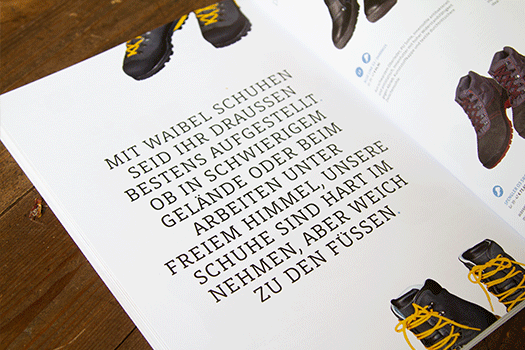 MIT WAIBEL SCHUHEN
SEID IHR DRAUSSEN
BESTENS AUFGESTELLT.
OB IN SCHWIERIGEM
GELÄNDE ODER BEIM
ARBEITEN UNTER
FREIEM HIMMEL, UNSERE
SCHUHE SIND HART IM
NEHMEN, ABER WEICH
ZU DEN FÜSSEN.